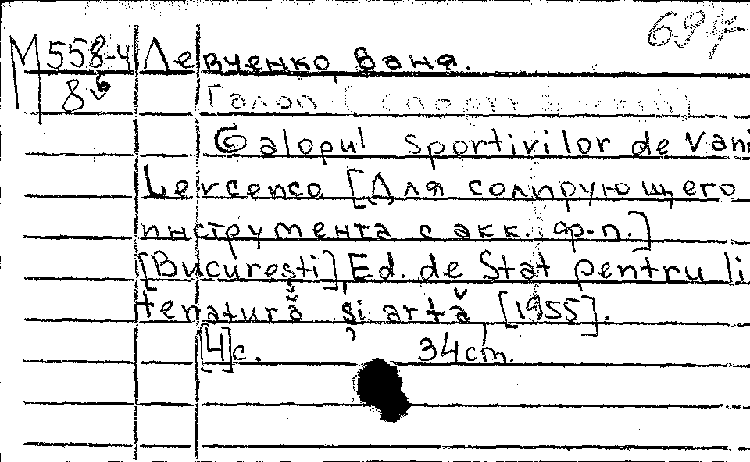 697
М 558-4 Левченко, Ваня.
8 Галоп [спорт
Galopul sportivilor de Van
Levcenco [Для солирующего
инструмента с акк. фр-п.]
[Bucureşti] Ed. de Stat pentru li
teratură şi artă [1955].
[4]с. 34cm.